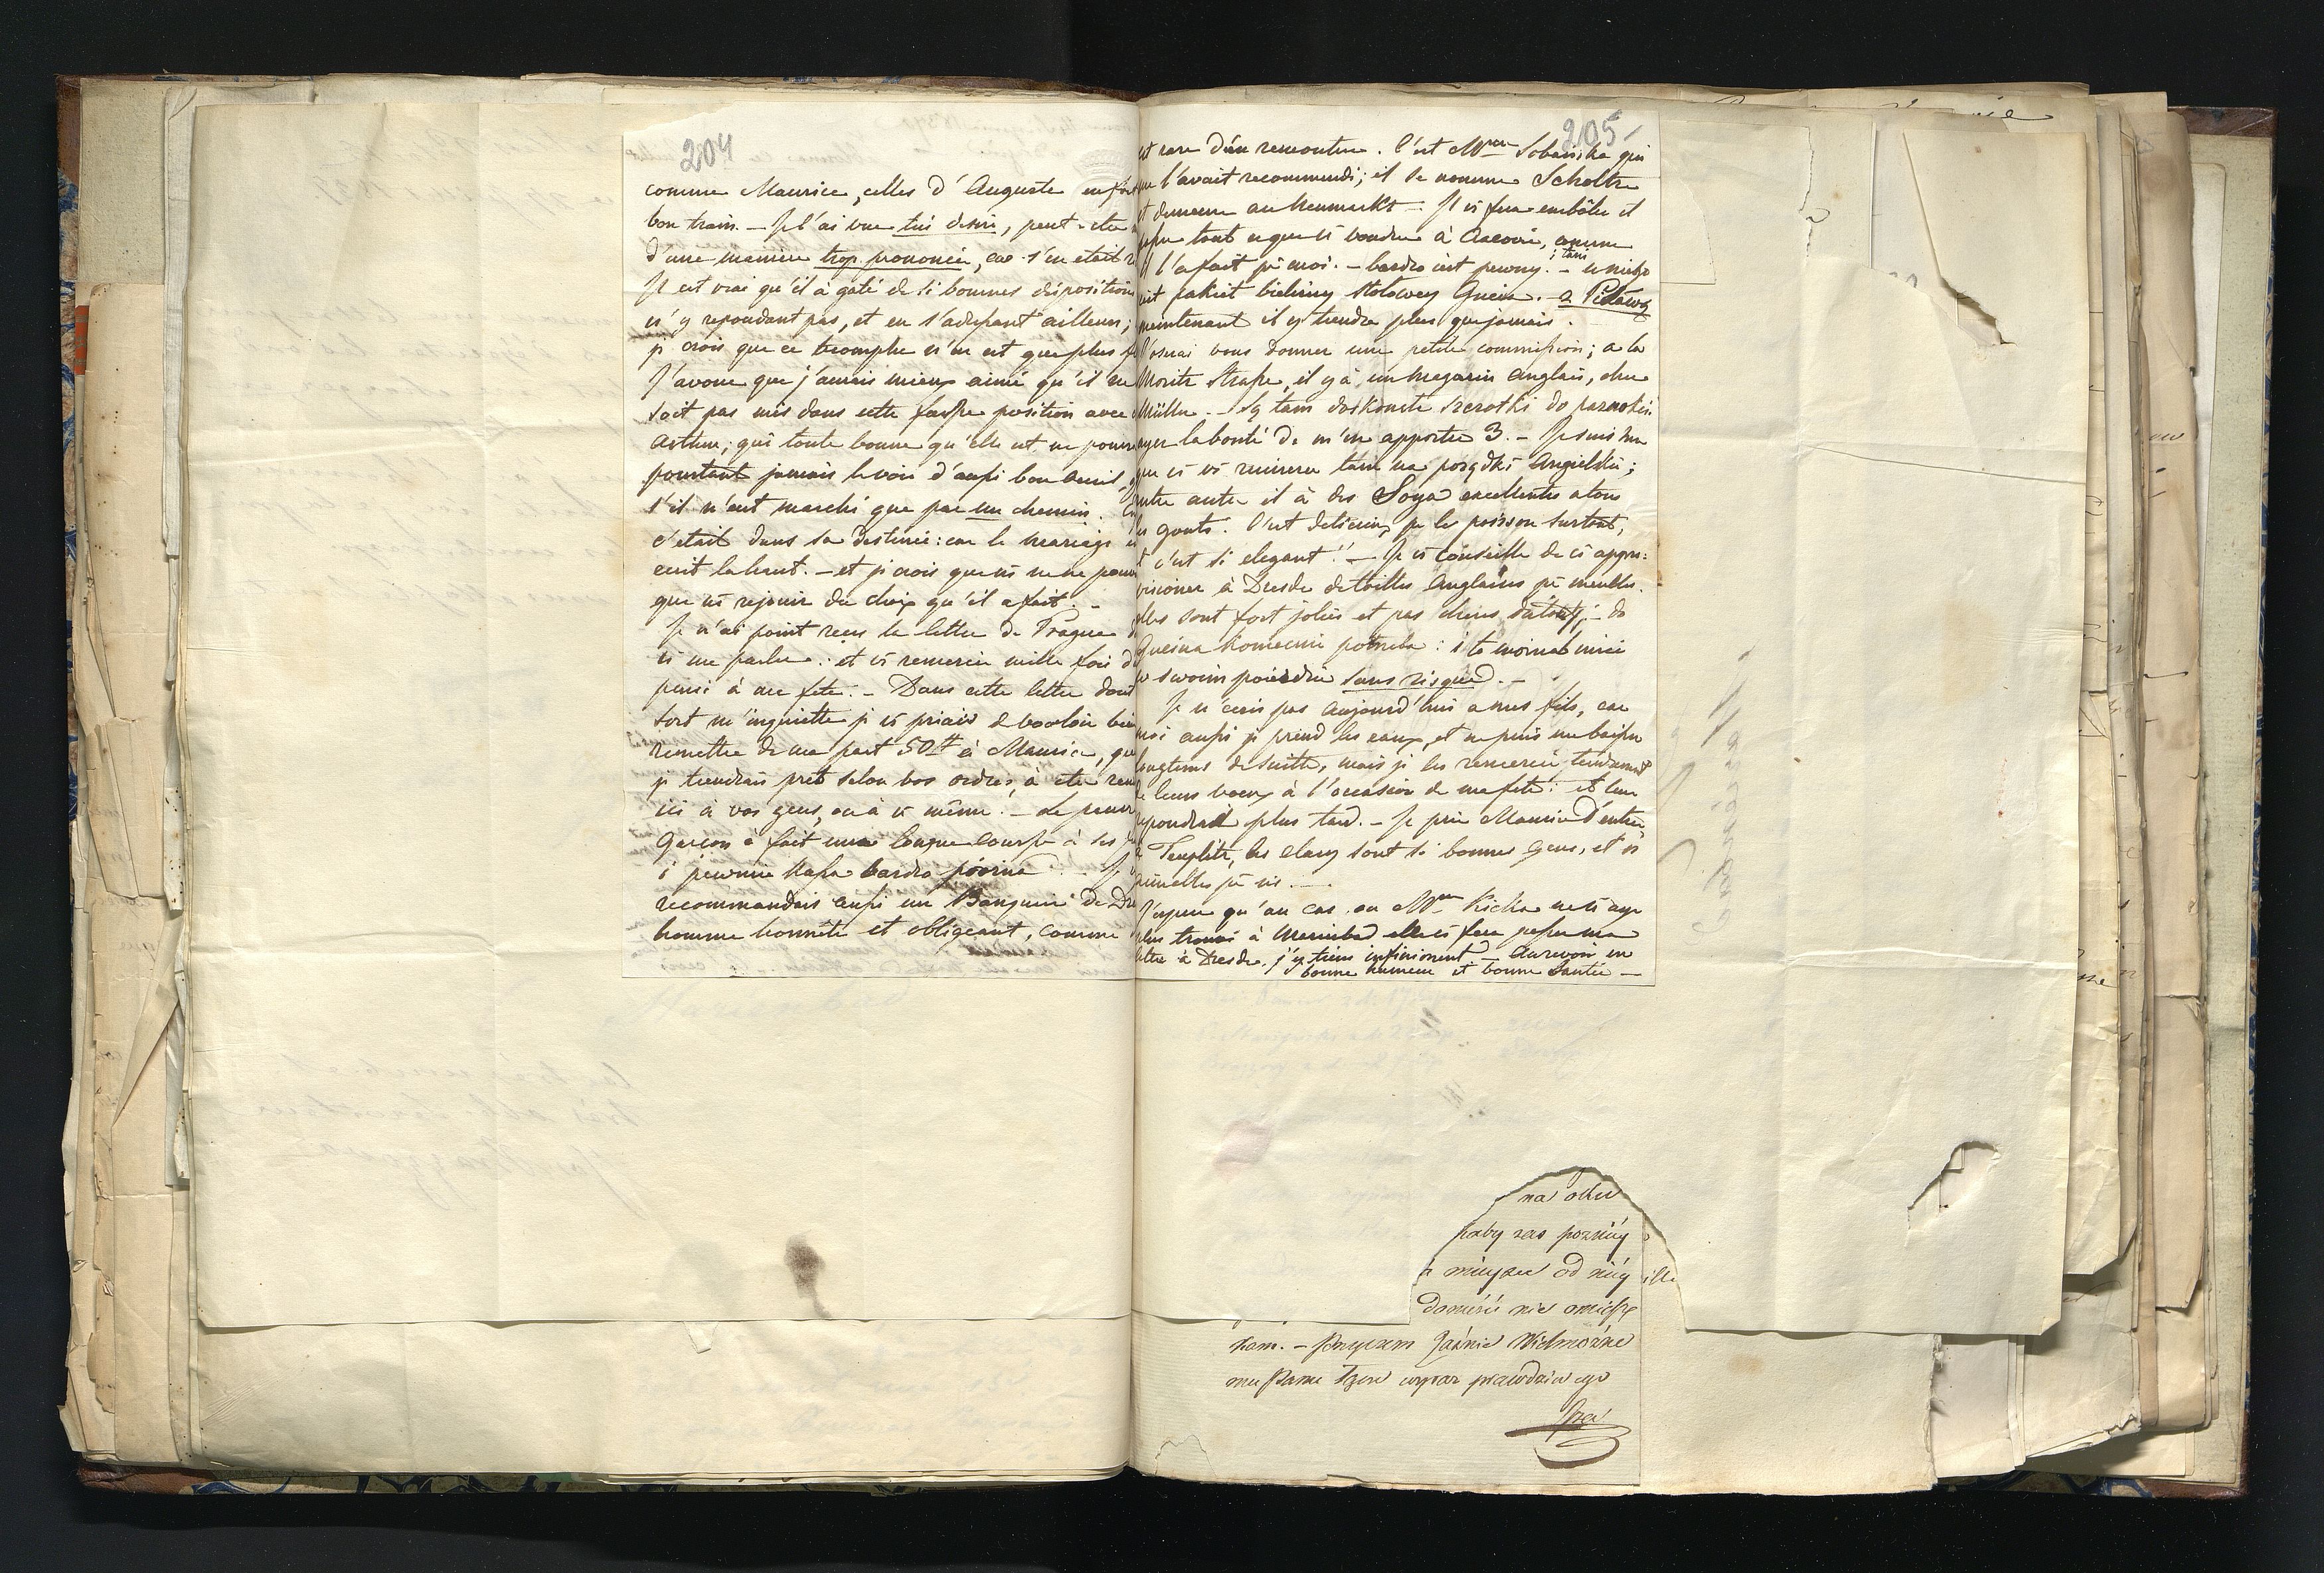 204
comme Maurice, celles d'Auguste en fait
bon train. — Je l'ai vue très désirée, peut-etre
d'une manière trop prononcée, car s'en etait
Il est vrai qu'il à gaté de si bonnes dispositions
n'y repondant pas, et en s'adressant ailleurs;
je crois que ce triomphe n'en est que plus
J'avoue que j'aurais mieux aimé qu'il ne
soit pas mis dans cette fausse position avec
Arthur; qui toute bonne qu'elle est, ne pourra
pourtant jamais le voir d'aussi bon oeuil,
s'il n'eut marché que par un chemin.
c'etait dans sa destinée: car le mariage
ecrit la haut. — et je crois que ns ne ne pouv
que ns rejouir du choix qu'il a fait. —
Je n'ai point reçu la lettre de Prague
vs me parlez: et vs remercie mille fois
pensé à ma fete. — Dans cette lettre dont
sort m'inquiette je vs priais de vouloir bien
remettre de ma part 50 # à Maurice, que
je tiendrais pret selon vos ordres, à etre
ici à vos gens, ou à vs même. — Le pauvre
Garçon à fait une longue course à ses
i pewnie kassa bardzo próżna. — Je
recommandais aussi un Banquier de
homme honnête et obligeant, comme
205
est rare d'en rencontrer. C'est Mme Sobańska qui
me l'avait recommendé; il se nomme Scholtze
et demeure au Neumarkt — Il vs fera emballer et
passer tout ce que vs voudrez à Cracovie, comme
il l'a fait pr moi. — bardzo jest pewny. — i tani — u niego
jest pakiet bielizny stołowey Gucia. — z Pilawą
maintenant il y tiendra plus que jamais.
J'oserai vous donner une petite commission; a la
Moritz Strasse, il y à un Magasin Anglais, chez
Müller. — Są tam doskonałe szczotki do paznokci.
ayez la bonté de m'en apporter 3. — Je suis sure
que vs vs ruinerez tam na porządki Angielskie;
entre autre il à des Soya excellentes a tous
les gouts. C'est delicieux pr les poisson surtout,
et c'est si elegant!! — Je vs conseille de vs appro:
visioner à Dresde de toilles Anglaises pr meubles.
elles sont fort jolies et pas cheres du tout; — do
Gucia koniecznie potrzeba: i to można mieć
w swoim pojeździe sans risque. —
Je n'ecris pas aujourd'hui a mes fils, car
moi aussi je prend les eaux, et ne puis me baisser
longtems de suitte, mais je les remercie tendrement
de leurs voeux à l'occasion de ma fete: et leur
repondrai plus tard. — Je prie Maurice d'entrer
à Teeplitz, les Clary sont si bonnes gens, et si
pr ns. —
J'espere qu'au cas ou Mme Kicka ne vs aye
plus trouvé à Marienbad elle vs fera passer ma
lettre à Dresde. j'y tiens infiniment. — Aurevoir en
bonne humeur et bonne Santée —
na oku
żaby zas pozniéy
miejsca od niéy
donieść nie omieszk
kam. — Przyczem Jaśnie Wielmożne
mu Panu